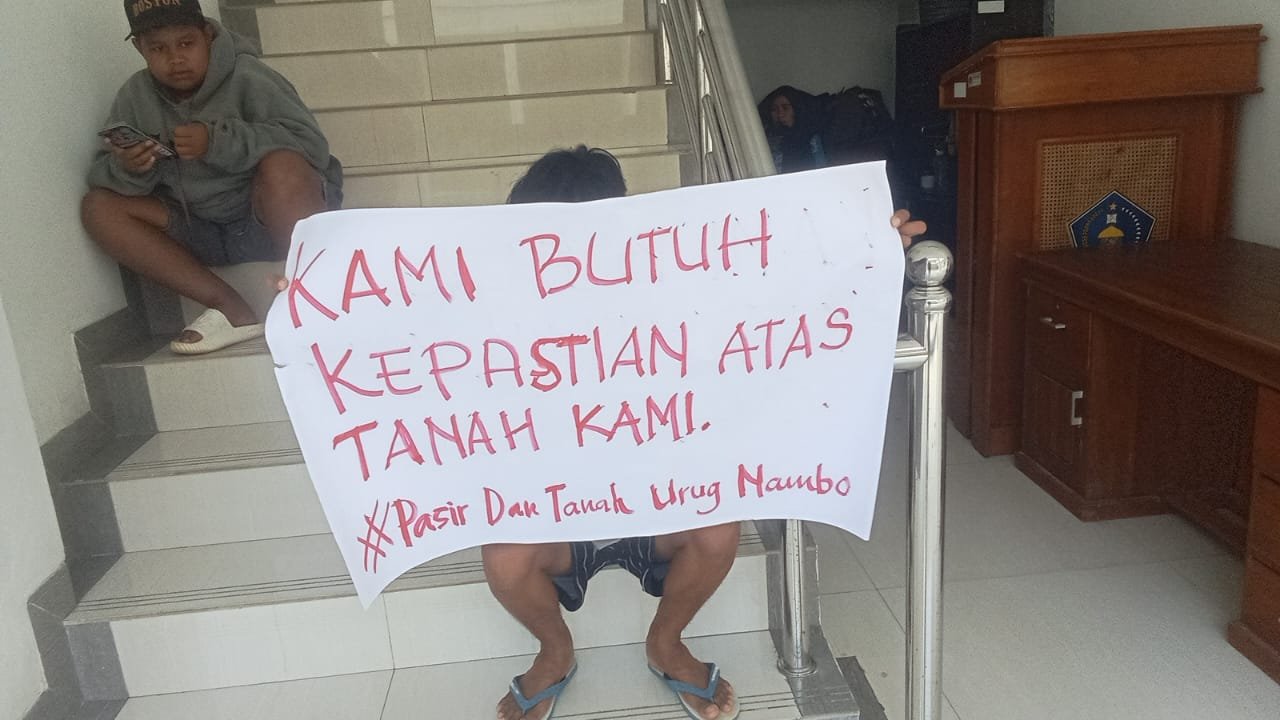 BOSTON
KAMI BUTUH
KEPASTIAN ATAS
TANAH KAMI.
#Pasir Dan Tanah Urug Nambo